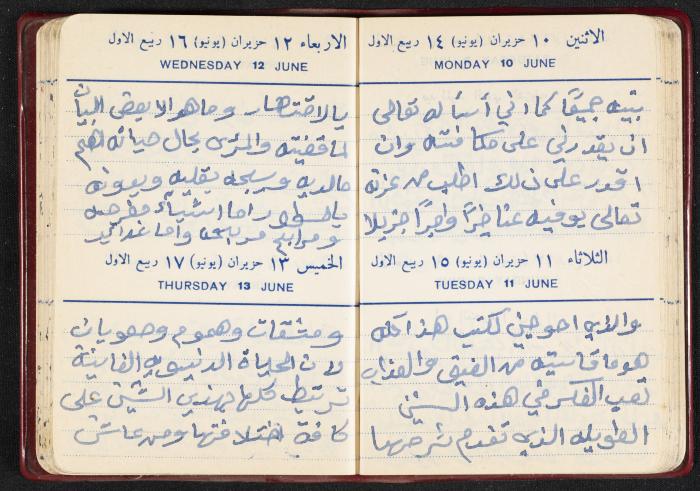 الاثنين ١٠ حزيران (يونيو) ١٤ ربيع الاول
MONDAY 10 JUNE
بيته جميعًا كما اني أسأله تعالى
ان يقدرني على مكافئته وان
اقدر على ذلك اطلب من عزته
تعالى يوفيه عنا خيرًا واجرًا جزيلا
الثلاثاء ١١ حزيران (يونيو) ١٥ ربيع الاول
TUESDAY 11 JUNE
والذي احوجني لكتب هذا كله
هو ما قاسيته من الضيق والعذاب
تعب الفكر في هذه السنين
الطويله الذي تقدم شرحها
الاربعاء ١٢ حزيران (يونيو) ١٦ ربيع الاول
WEDNESDAY 12 JUNE
بالاختصار وما هو الا بعض البيان
لما قضيته والمرئ بحال حياته اهم
ما لديه وبعونه
اما اشياء مفرحه
واما غدا
الخميس ١٣ حزيران (يونيو) ١٧ ربيع الاول
THURSDAY 13 JUNE
ومشقات وهموم وصعوبات
لان الحياة الدنيويه الفانية
ترتبط كلها بهذين الشيئين على
كافة اختلافتها ومن عاش